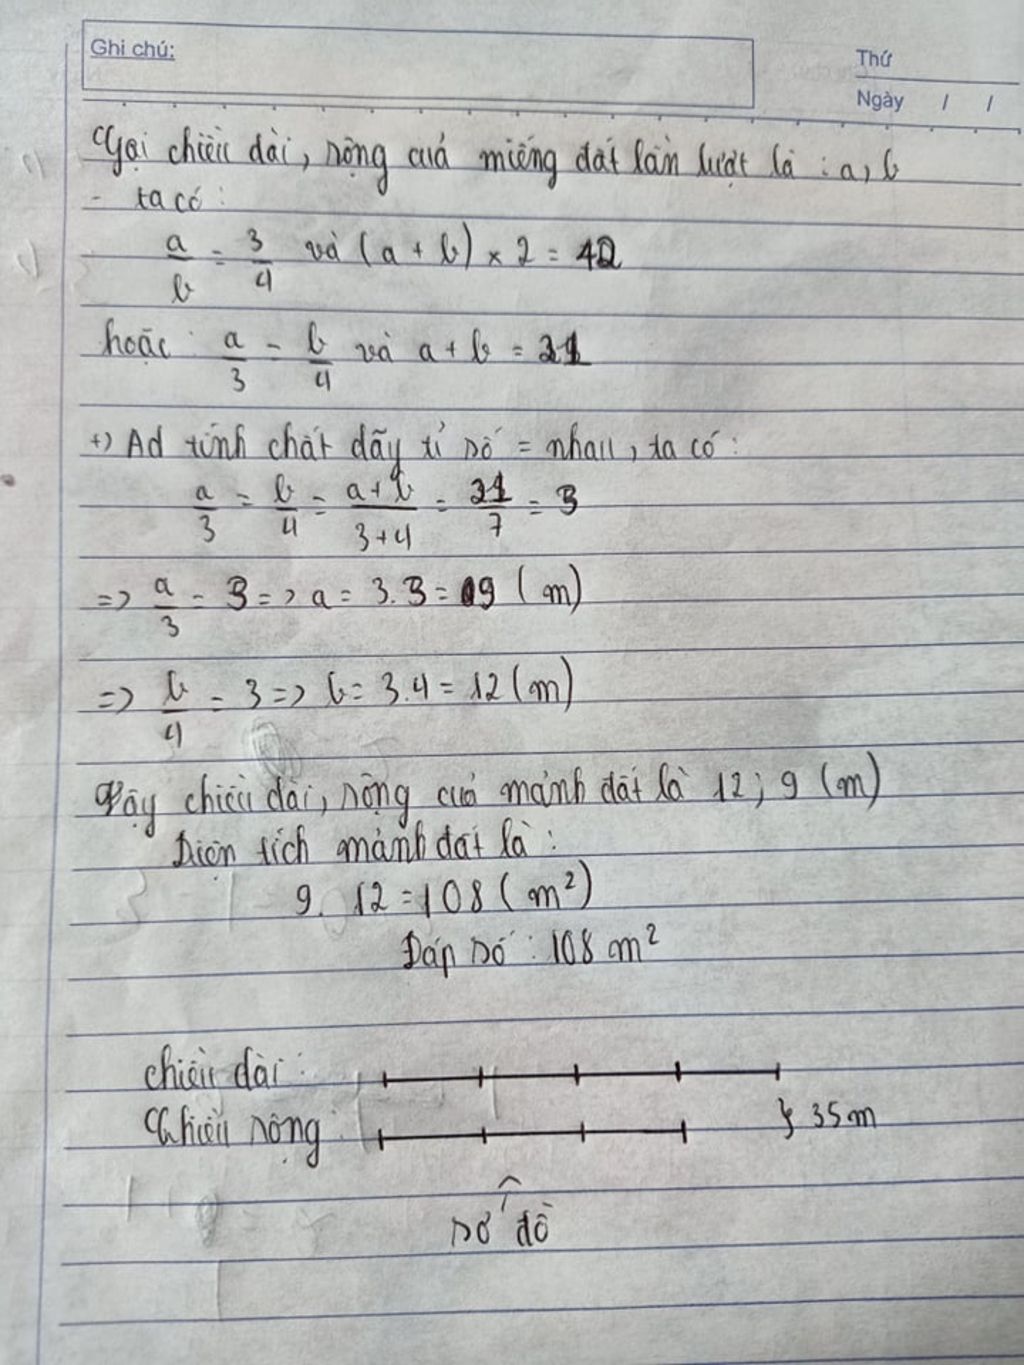 Ghi chú:
Thứ
Ngày / /
Gọi chiều dài, rộng của miếng đất lần lượt là : a, b
- ta có :
a/b = 3/4 và (a + b) × 2 = 42
hoặc : a/3 = b/4 và a + b = 21
+) Ad tính chất dãy tỉ số = nhau, ta có :
a/3 = b/4 = a+b/3+4 = 21/7 = 3
=> a/3 = 3 => a = 3.3 = 9 (m)
=> b/4 = 3 => b = 3.4 = 12 (m)
Vậy chiều dài, rộng của mảnh đất là 12; 9 (m)
Diện tích mảnh đất là :
9. 12 = 108 (m²)
Đáp số : 108 m²
chiều dài :
Chiều rộng :
} 35m
sơ đồ